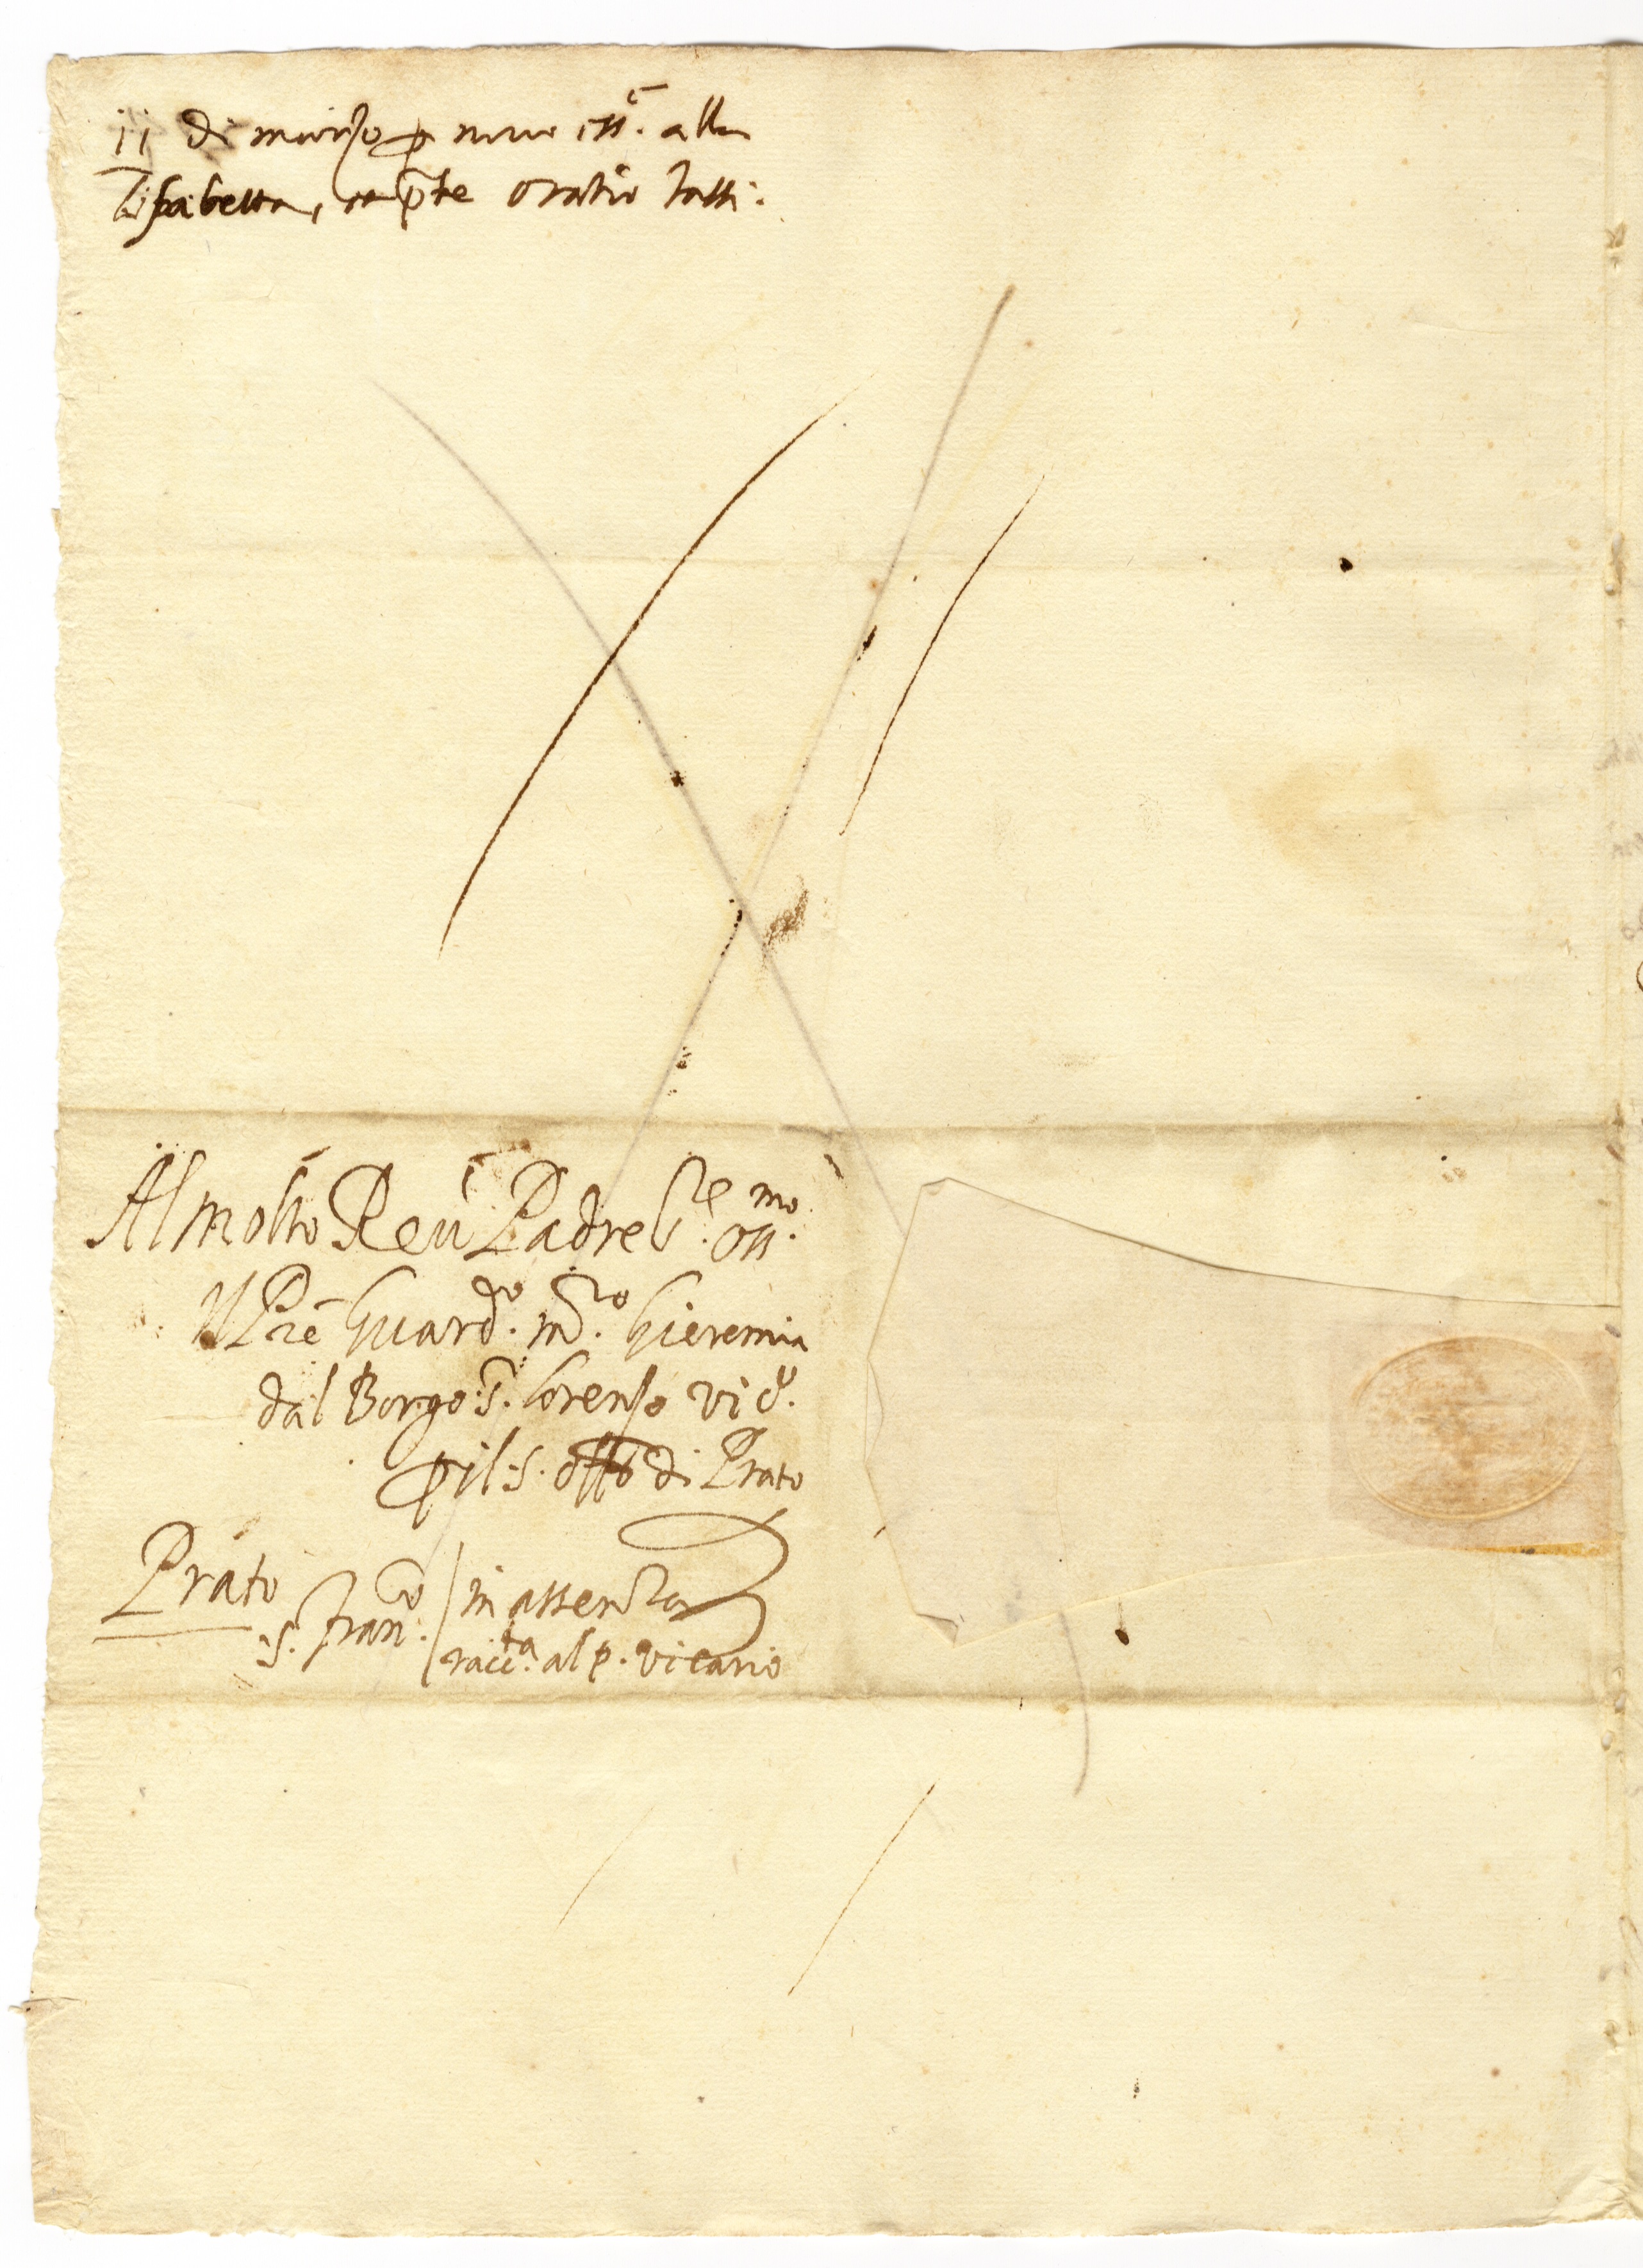 11 di marzo p nuo ess. alla
Lisabetta, pnte oratio tassi.
Al molto Reu Padre S.re oss.mo
Il Pre Guardo. m.ro Gieremia
dal Borgo .S. Lorenzo Vic.o
p il .S. Offo di Prato
Prato
.S. Franco. / in assenza
racc.ta al p. vicario